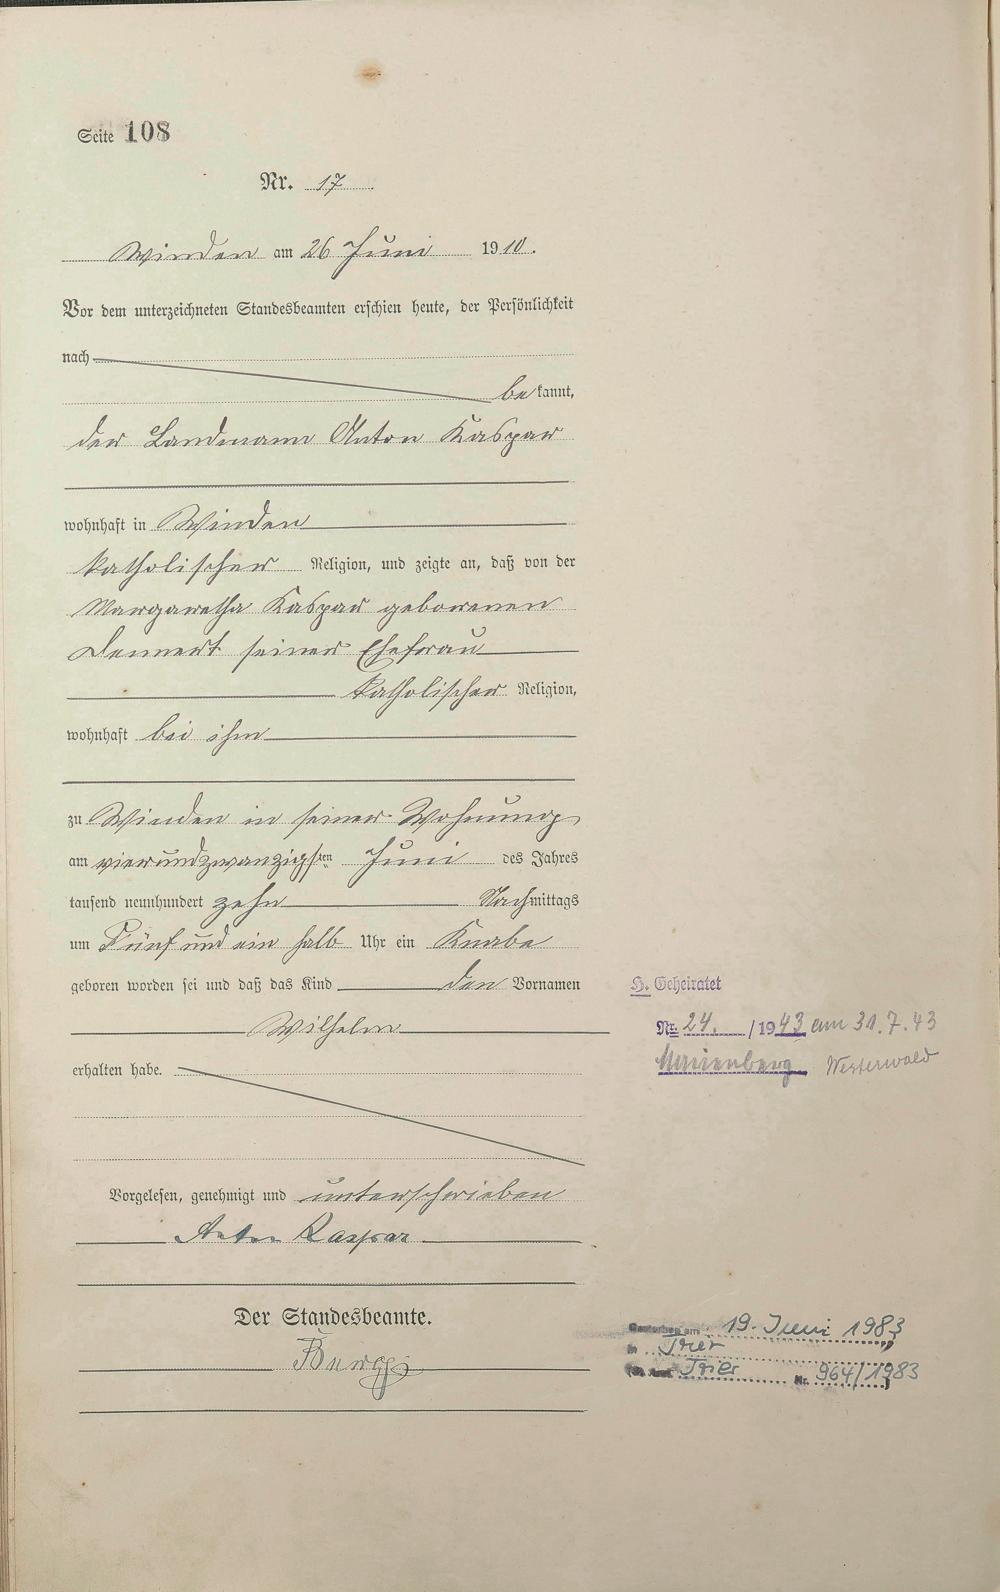 Seite 108
Nr. 17
Winden am 26 Juni 1910.
Vor dem unterzeichneten Standesbeamten erschien heute, der Persönlichkeit
nach
bekannt,
der Landmann Anton Kaspar
wohnhaft in Winden
katholischer Religion, und zeigte an, daß von der
Margaretha Kaspar geborenen
Dennert seiner Ehefrau
katholischer Religion,
wohnhaft bei ihm
zu Winden in seiner Wohnung
am vierundzwanzigsten Juni des Jahres
tausend neunhundert zehn Nachmittags
um Fünf und ein halb Uhr ein Knabe
geboren worden sei und daß das Kind den Vornamen
Wilhelm
erhalten habe.
Vorgelesen, genehmigt und unterschrieben
Anton Kaspar
Der Standesbeamte.
H. Geheiratet
Nr. 24. /1943 am 31.7.43
Marienberg Westerwald
Gestorben am 19. Juni 1983
in Trier
Trier Nr. 964/1983